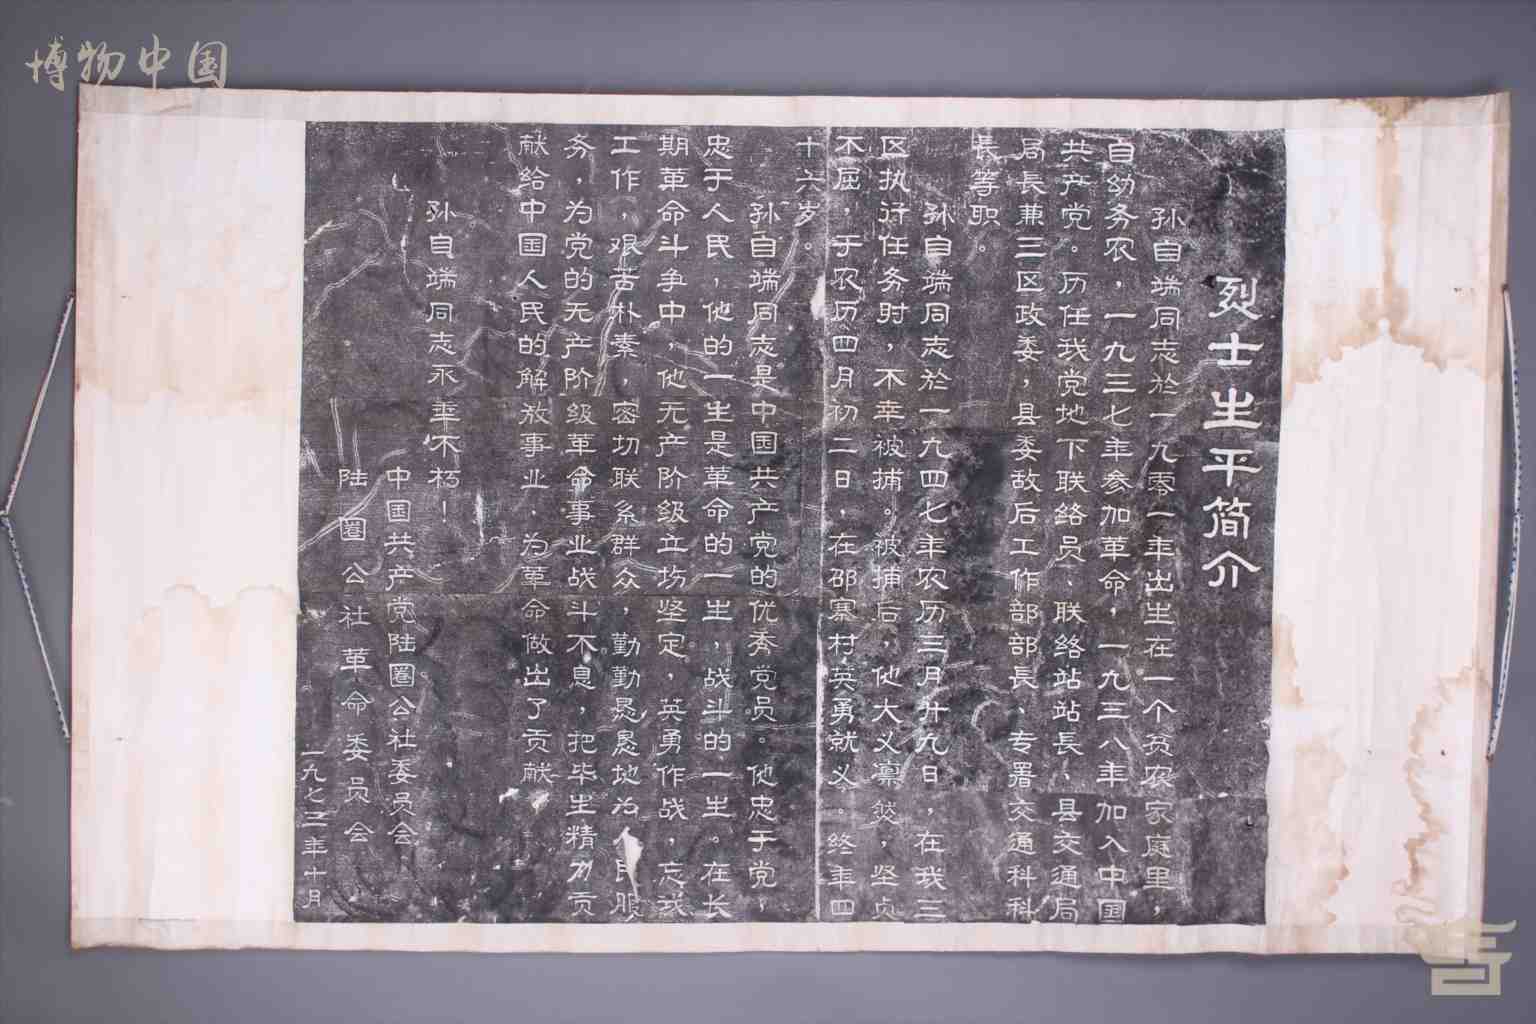 博物中国
烈士生平简介
孙自端同志於一九零一年出生在一个贫农家庭里，
自幼务农，一九三七年参加革命，一九三八年加入中国
共产党。历任我党地下联络员、联络站站長、县交通局
局長兼三区政委，县委敌后工作部部長、专署交通科科
長等职。
孙自端同志於一九四七年农历三月廿九日，在我三
区执行任务时，不幸被捕。被捕后，他大义凛然，坚贞
不屈，于农历四月初二日，在邵寨村英勇就义。终年四
十六岁。
孙自端同志是中国共产党的优秀党员。他忠于党，
忠于人民，他的一生是革命的一生，战斗的一生。在长
期革命斗争中，他无产阶级立场坚定，英勇作战，忘我
工作，艰苦朴素，密切联系群众，勤勤恳恳地为人民服
务，为党的无产阶级革命事业战斗不息，把毕生精力贡
献给中国人民的解放事业，为革命做出了贡献
孙自端同志永垂不朽！
中国共产党陆圈公社委员会
陆圈公社革命委员会
一九七三年十月